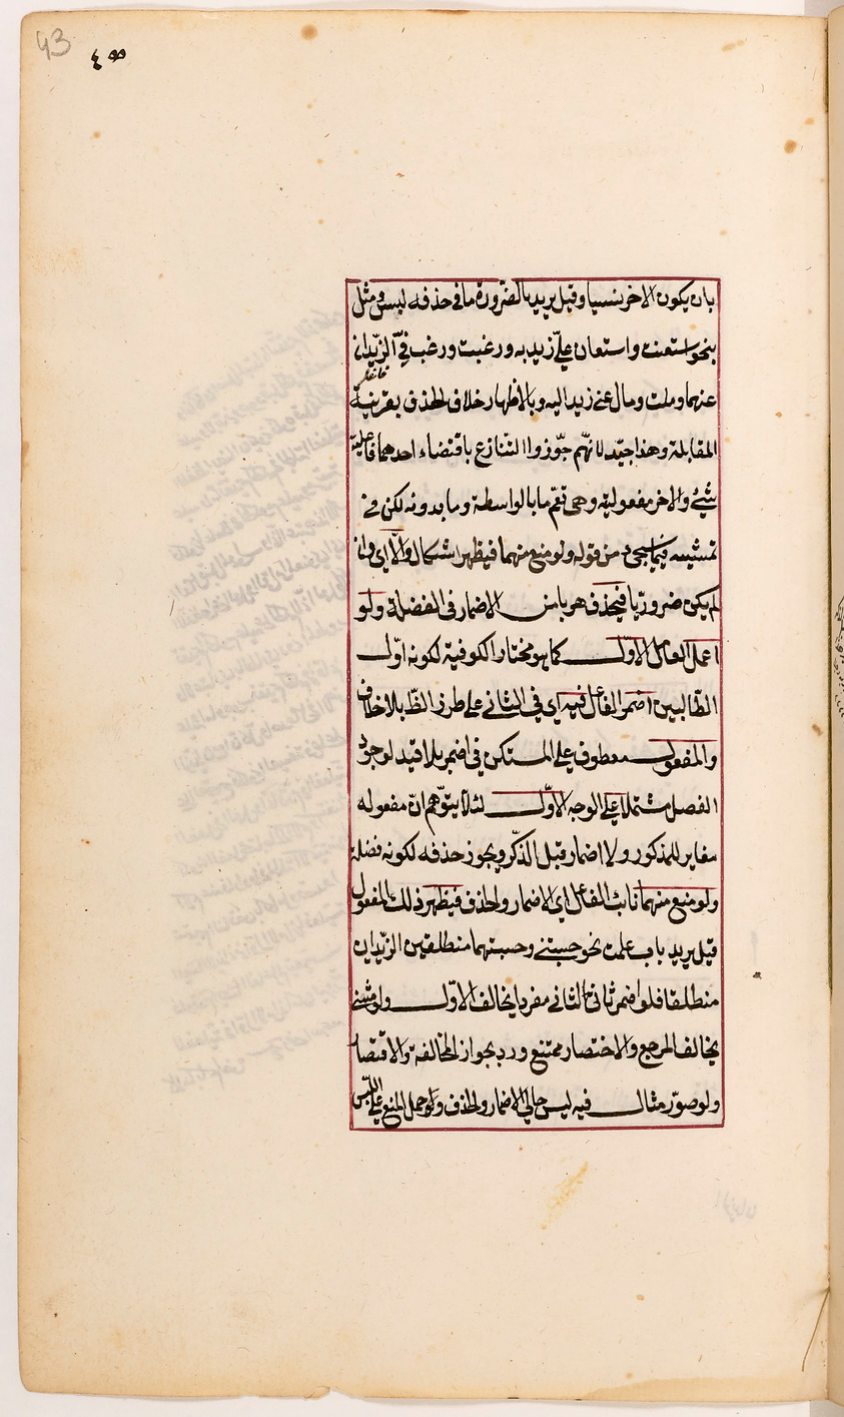 43
٤٣
بان يكون الاخر نسيا وقيل يريد بالضرورة ما في حذفه لبس ومثل
بنحو استعنت واستعان علىّ زيد به ورغبت ورغب فىّ الزيدان
عنهما وملت ومال عنى زيد اليه وبالاظهار خلاف الحذف بقرينة
المقابلة وهذا جيّد لانّهم جوّزوا التّنازع باقتضاء احدهما فاعليّة
شئ والاخر مفعوليته وهى تعمّ ما بالواسطة وما بدونه لكن فى
تمشيته فيما سيجئ من قوله ولو منع منهما فيظهر اشكال والّا اى وان
لم يكن ضروريا فيحذف هربا من الاضمار فى الفضلة ولو
اعمل العامل الاوّل كما هو مختار الكوفية لكونه اوّل
الطّالبين اضمر الفاعل فيه اى فى الثانى على طرز الظّ بلا خلاف
والمفعول معطوف على المستكن فى اضمر بلا قيد لوجود
الفصل مشتملا على الوجه الاوّل لئلا يتوهّم انّ مفعوله
مغاير للمذكور ولا اضمار قبل الذّكر ويجوز حذفه لكونه فضلة
ولو منع منهما نائب الفاعل اى الاضمار والحذف فيظهر ذلك المفعول
قيل يريد باب علمت نحو حسبنى وحسبتهما منطلقين الزيدان
منطلقا فلو اضمر ثانى الثانى مفردا يخالف الاوّل ولو مثنى
يخالف المرجع والاختصار ممتنع ورد بجواز المخالفة والاقتصار
ولو صوّر مثال فيه ليس حالى الاضمار والحذف ولو حمل المنع على اللبس